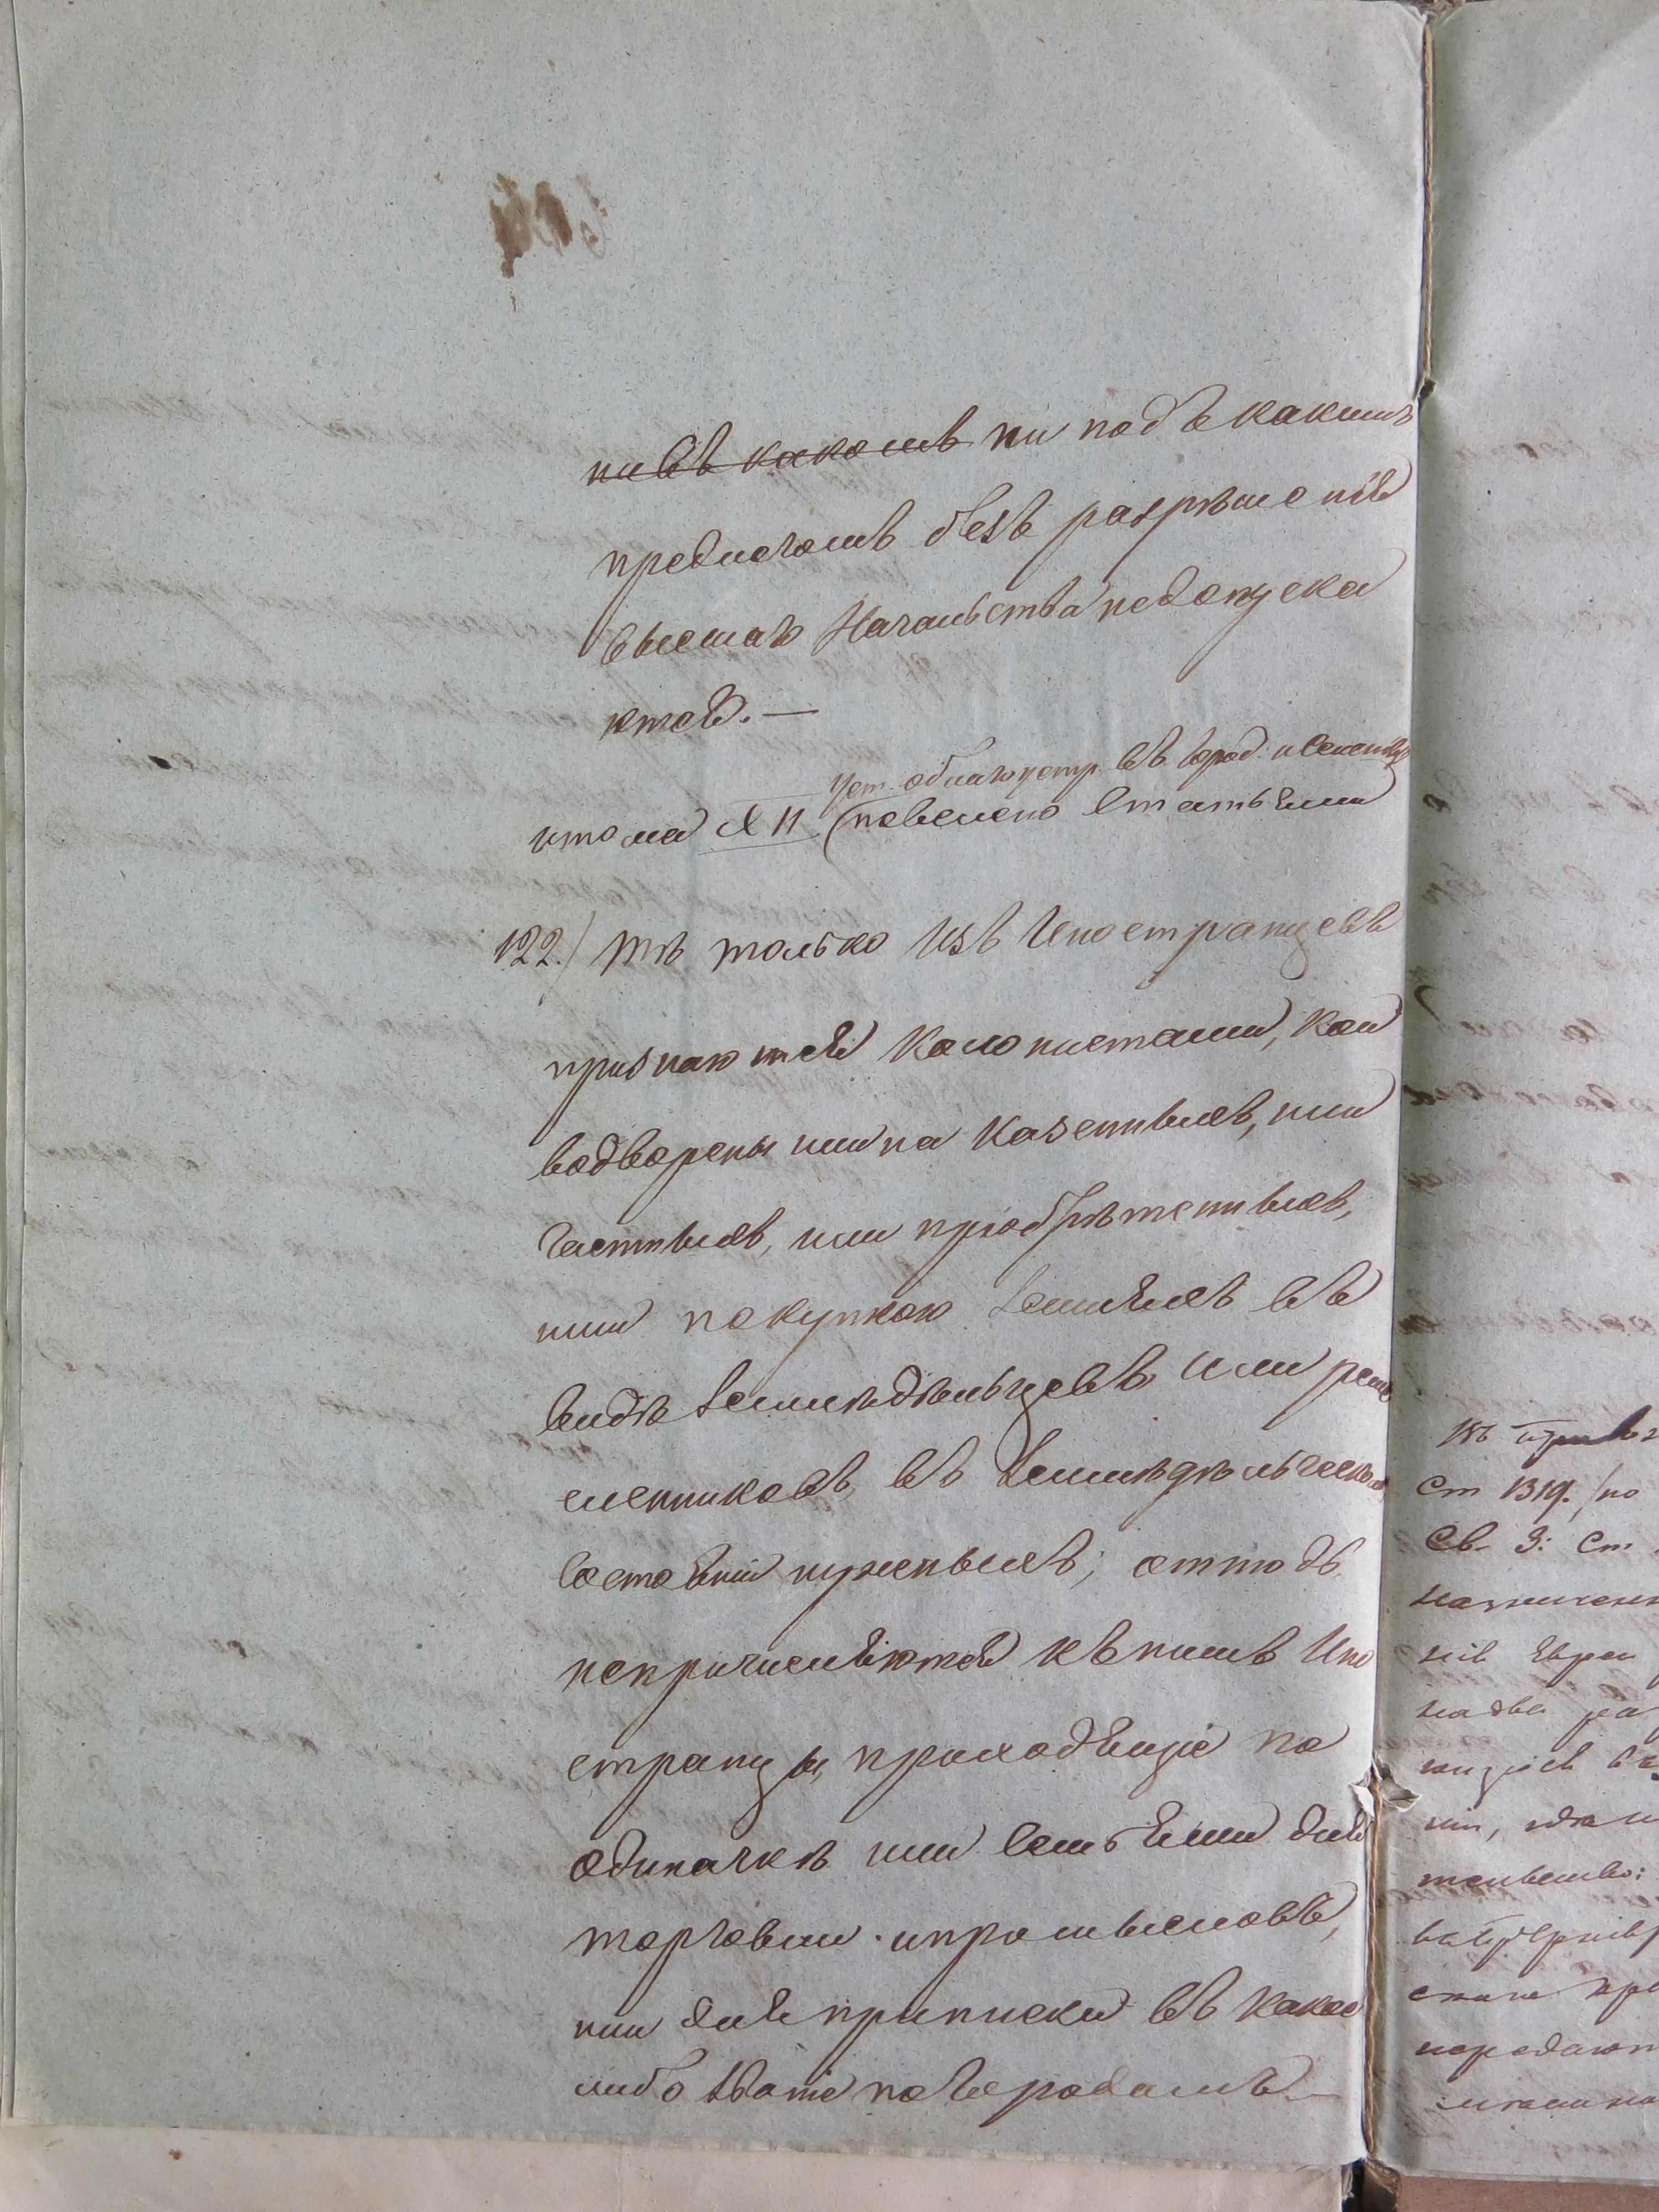 ни въ какомъ ни подъ какимъ
предлогомъ безъ разрѣшенія
высшаго Начальства недопуска
ются. —
Уст. о благоустр. въ город. и селеніяхъ
и тома XII (повелено Статьями
122./ Тѣ только изъ Иностранцевъ
признаются Колонистами, кои
водворены или на казенныхъ, или
частныхъ, или пріобрѣтенныхъ,
ими покупкою земляхъ въ
видѣ земледѣльцевъ или реме
сленниковъ, въ земледѣльческомъ
состояніи нужныхъ; оттюдъ
непричисляются къ нимъ Ино
странцы, приходящіе по
одиначкѣ или семьями для
торговли и промысловъ,
или для приписки въ какое
либо званіе по городамъ. —
Ст 1319. /по
Св. 3: Ст
назначен
ній Евреи
на два ра